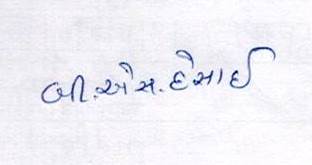 બી.એસ.દેસાઈ